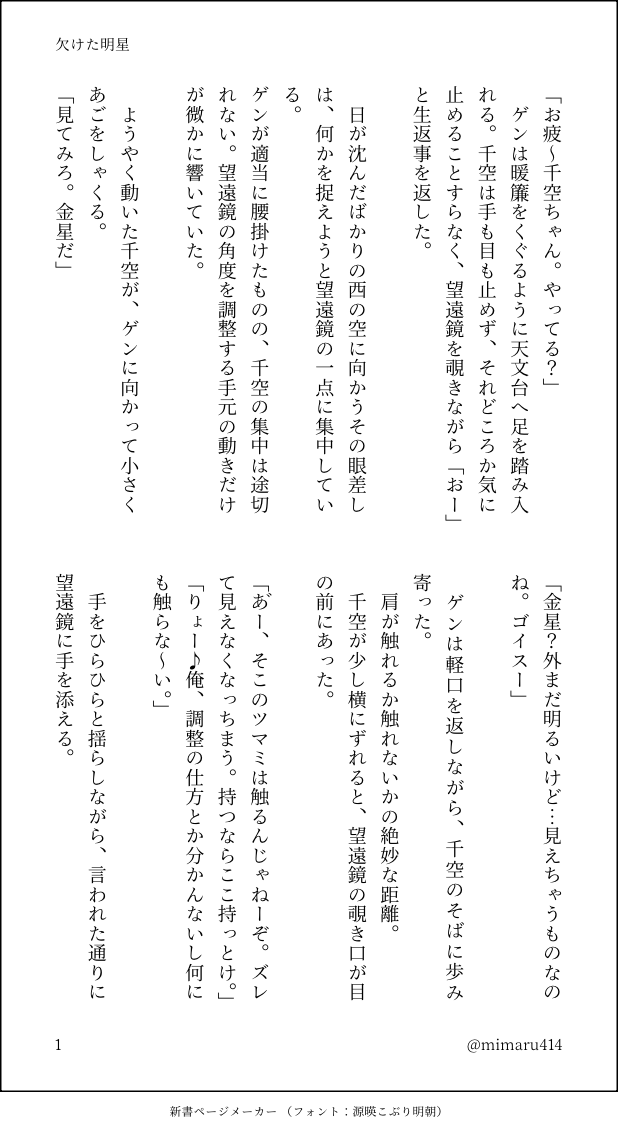 欠けた明星
「お疲〜千空ちゃん。やってる？」
　ゲンは暖簾をくぐるように天文台へ足を踏み入
れる。千空は手も目も止めず、それどころか気に
止めることすらなく、望遠鏡を覗きながら「おー」
と生返事を返した。
　日が沈んだばかりの西の空に向かうその眼差し
は、何かを捉えようと望遠鏡の一点に集中してい
る。
ゲンが適当に腰掛けたものの、千空の集中は途切
れない。望遠鏡の角度を調整する手元の動きだけ
が微かに響いていた。
　ようやく動いた千空が、ゲンに向かって小さく
あごをしゃくる。
「見てみろ。金星だ」
「金星？外まだ明るいけど…見えちゃうものなの
ね。ゴイスー」
　ゲンは軽口を返しながら、千空のそばに歩み
寄った。
　肩が触れるか触れないかの絶妙な距離。
　千空が少し横にずれると、望遠鏡の覗き口が目
の前にあった。
「あ゙ー、そこのツマミは触るんじゃねーぞ。ズレ
て見えなくなっちまう。持つならここ持っとけ。」
「りょー♪俺、調整の仕方とか分かんないし何に
も触らな〜い。」
　手をひらひらと揺らしながら、言われた通りに
望遠鏡に手を添える。
1
@mimaru414
新書ページメーカー（フォント：源暎こぶり明朝）